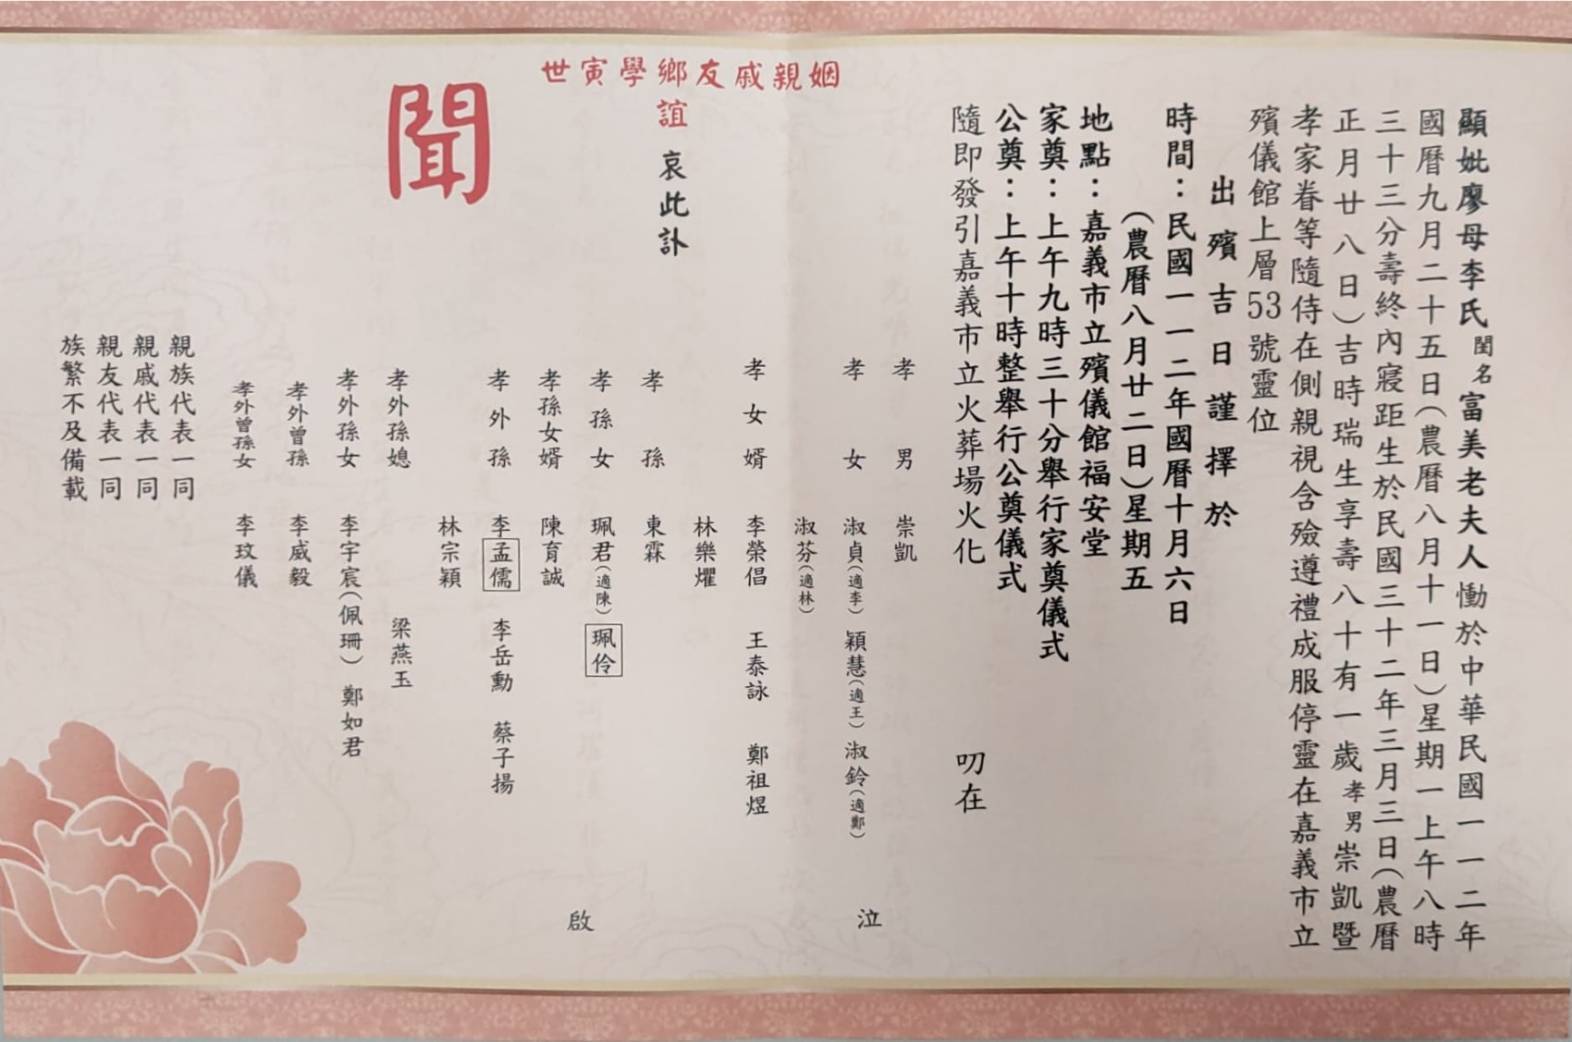 顯妣廖母李氏閨名富美老夫人慟於中華民國一一二年
國曆九月二十五日(農曆八月十一日)星期一上午八時
三十三分壽終內寢距生於民國三十二年三月三日(農曆
正月廿八日)吉時瑞生享壽八十有一歲孝男崇凱暨
孝家眷等隨侍在側親視含殮遵禮成服停靈在嘉義市立
殯儀館上層53號靈位
出殯吉日謹擇於
時間：民國一一二年國曆十月六日
(農曆八月廿二日)星期五
地點：嘉義市立殯儀館福安堂
家奠：上午九時三十分舉行家奠儀式
公奠：上午十時整舉行公奠儀式
隨即發引嘉義市立火葬場火化
叨在
姻親戚友鄉學寅世
誼
哀此訃
聞
孝男 崇凱
孝女 淑貞(適李) 穎慧(適王) 淑鈴(適鄭)
淑芬(適林)
泣
孝女婿 李榮倡 王泰詠 鄭祖煜
林樂燿
孝孫 東霖
孝孫女 珮君(適陳) 珮伶
孝孫女婿 陳育誠
孝外孫 李孟儒 李岳勳 蔡子揚
林宗穎
孝外孫媳 梁燕玉
孝外孫女 李宇宸(佩珊) 鄭如君
孝外曾孫 李威毅
孝外曾孫女 李玟儀
啟
親族代表一同
親戚代表一同
親友代表一同
族繁不及備載